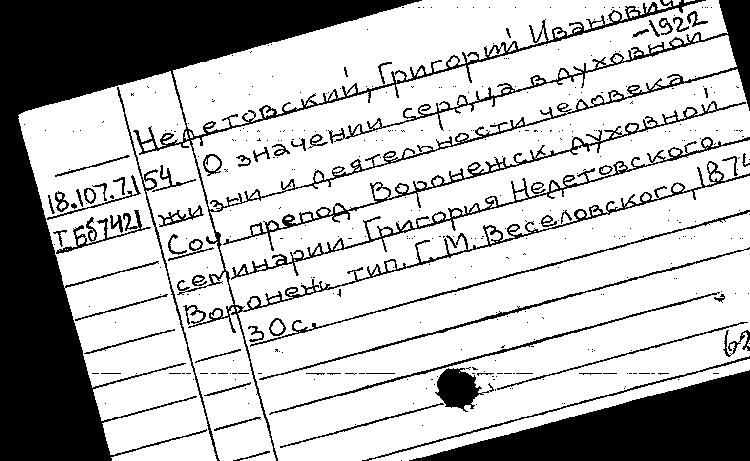 Недетовский, Григорий Иванович,
-1922
О значении сердца в духовной
18.107.7.154.
жизни и деятельности человека
ІБб7421
Соч. препод. Воронежск. духовной
семинарии Григория Недетовского.
Воронеж., тип. Г. М. Веселовского, 1874
30с.
62